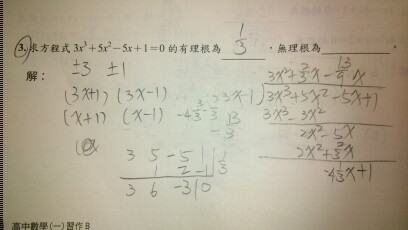 3. 求方程式 3x³+5x²-5x+1=0 的有理根為 1/3 , 無理根為
解：
±3 ±1
(3x+1) (3x-1)
(x+1) (x-1)
3 5 -5 1 | 1/3
1 2 -1
3 6 -3 | 0
3x³+5x²-5x+1
3x³-3x²
2x²-5x
2x²+2/3x
-4 1/3 x+1
高中數學(一)習作B